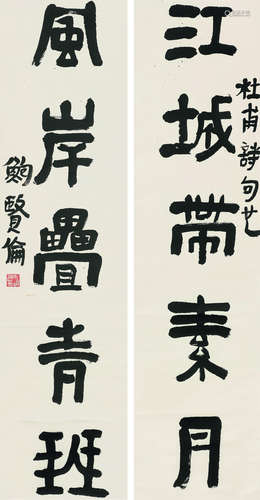 江城帶素月
杜甫詩句也
風岸疊青班
鮑賢倫